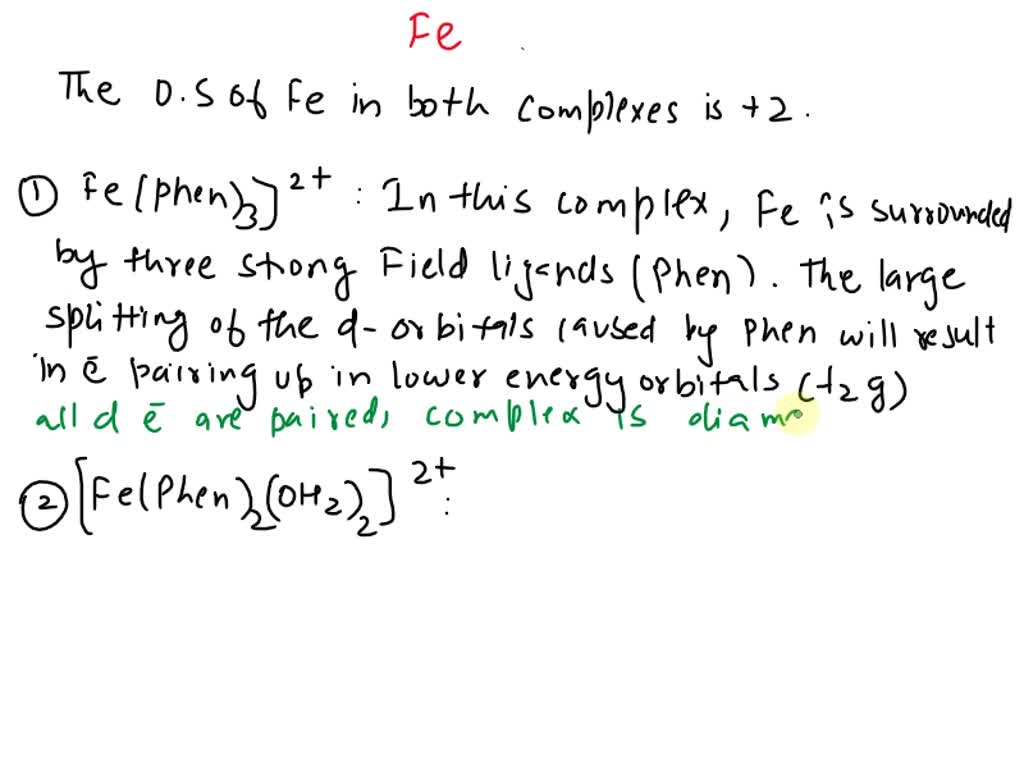 Fe
The O.S of Fe in both complexes is +2.
① Fe(phen)3]2+ : In this complex, Fe is surrounded
by three strong Field ligands (Phen). The large
splitting of the d-orbitals caused by Phen will result
in ē pairing up in lower energy orbitals (t2g)
all d ē are paired, complex is diam
② [Fe(Phen)2(OH2)2]2+ :